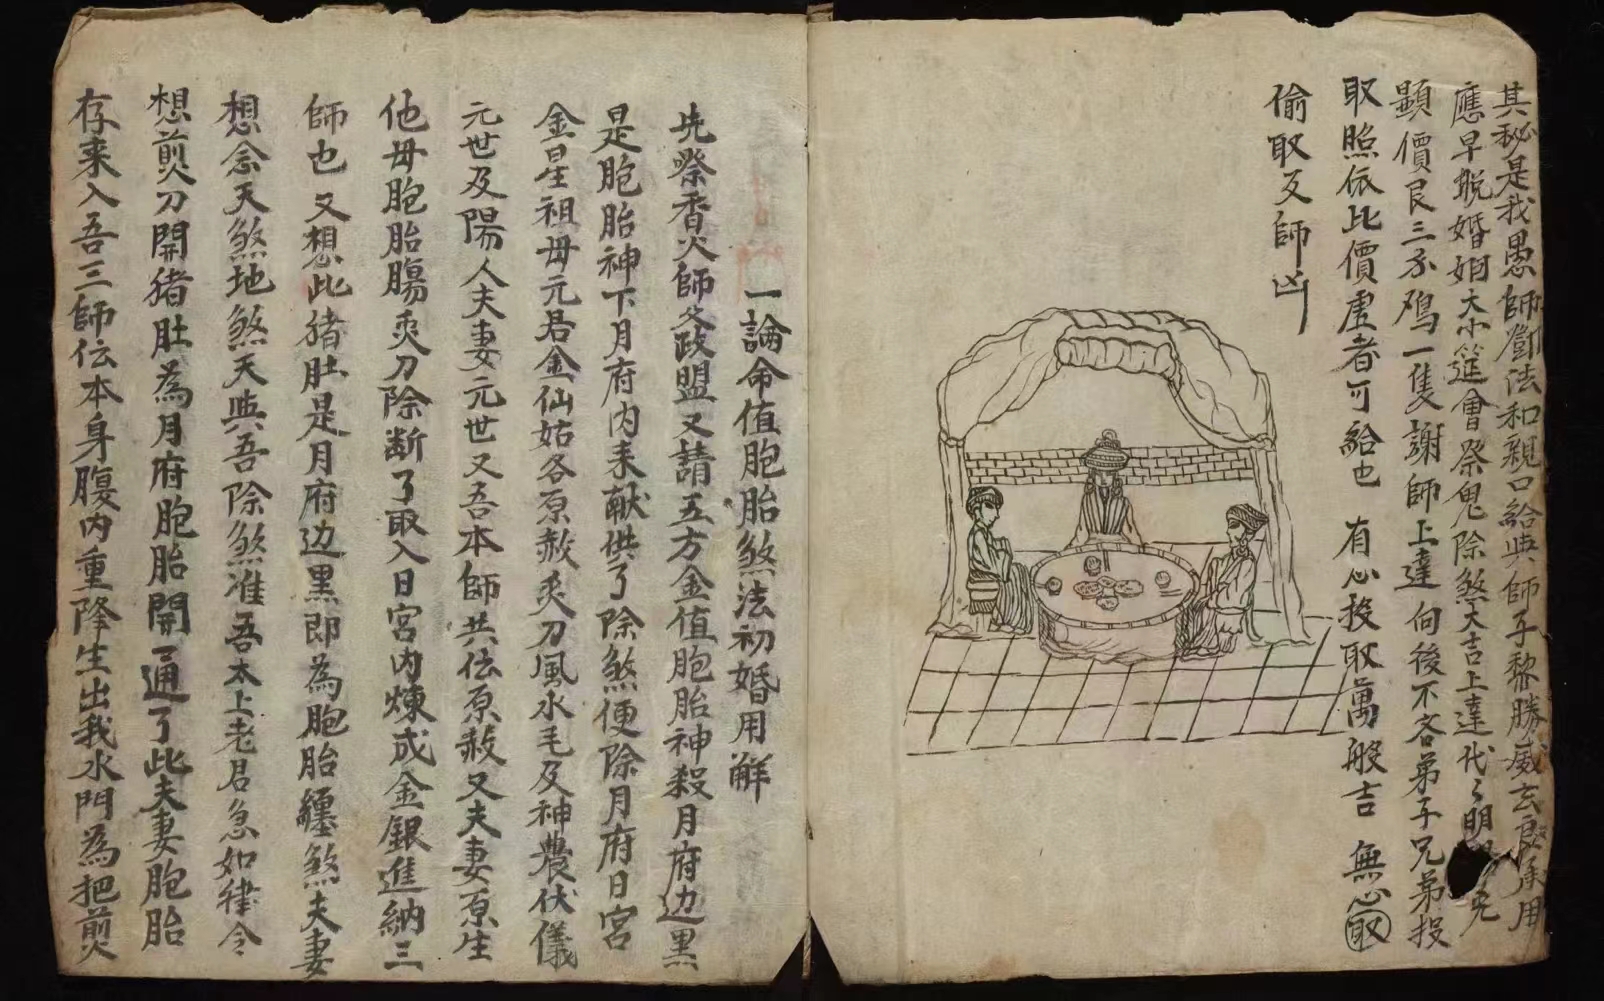 其秘是我愚師鄧法和親口給與師子黎勝威玄良承用
應早晩婚姻大小筵會祭鬼除煞大吉上達代々明
顕價艮三分鸡一隻謝師上達向後不吝弟子兄弟投
取照依比價虚者可給也 有心投取萬般吉 無心取
偷取叉師凶
一論命值胞胎煞法初婚用解
先嚟香火師父政盟又請五方金值胞胎神殺月府边黑
是胞胎神下月府内来献供了除煞便除月府日宮
金星祖母元君金仙姑各原赦炙刀風水毛及神農伏儀
元世及陽人夫妻元世又吾本師共伝原赦又夫妻原生
他母胞胎膓炙刀除断了取入日宮内煉成金銀進納三
師也又想此猪肚是月府边黑即為胞胎纏煞夫妻
想念天煞地煞天與吾除煞准吾太上老君急如律令
想煎刀開猪肚為月府胞胎開通了此夫妻胞胎
存来入吾三師伝本身腹内重降生出我水門為把煎